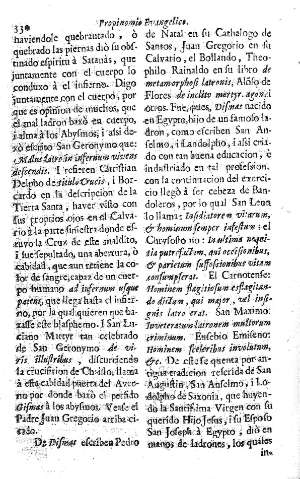 330
Propinomio Evangelico.
haviendole quebrantado, ò
quebrado las piernas diò su obs-
tinado espiritu à Satanàs, que
juntamente con el cuerpo lo
conduxo à el infierno. Digo
juntamente con el cuerpo, por
que es opinion de muchos, que
el mal ladron baxò en cuerpo,
i alma à los Abysmos; i assi de-
xò escrito San Geronymo que:
Malus latro in infernum vivens
descendis. I refieren Christian
Delpho de titulo Crucis, i Bor-
cardo en la descripcion de la
Tierra Santa, haver visto con
sus propios ojos en el Calva-
rio à la parte siniestra donde es-
tuvo la Cruz de este maldito,
i fue sepultado, una abertura, ò
cabidad, que aun retiene la co-
lor de sangre, capàz de un cuer-
po humano ad infernum usque
patens, que llega hasta el infier-
no, por la qual quieren que ba-
xasse este blasphemo. I San Lu-
ciano Martyr tan celebrado
de San Geronymo de vi-
ris illustribus, discurriendo
la crucifixion de Christo, llama
à esta cabidad puerta del Aver-
no por donde baxò el perdido
Gismas à los abysmos. Vease el
Padre Juan Gregorio arriba ci-
tado.
De Dismas escriben Pedro
de Natal en su Cathalogo de
Santos, Juan Gregorio en su
Calvario, el Bollando, Theo-
philo Rainaldo en su libro de
metamorphosi latronis, Alfonso de
Flores de inclito martyr. agon. i
otros. Fue, pues, Dismas nacido
en Egypto, hijo de un famoso la-
dron, como escriben San An-
selmo, i Landolpho, i assi cria-
do con tan buena educacion, è
industriado en tal profession,
con la continuacion del exerci-
cio llegò à ser cabeza de Ban-
doleros, por lo qual San Leon
lo llama: Insidiatorem viarum,
& hominum semper infestum: el
Chrysostomo:
Hominem
El Carnotense:
San Maximo:
Inveteratum latronem multorum
criminum. Eusebio Emiseno:
Hominem sceleribus involutum,
&c. De este se quenta por an-
tigua tradicion referida de San
Augustin, San Anselmo, i Lo-
dolpho de Saxonia, que huyen-
do la Santissima Virgen con su
querido Hijo Jesus, i su Esposo
San Joseph à Egypto, diò en
manos de ladrones, los quales
in-